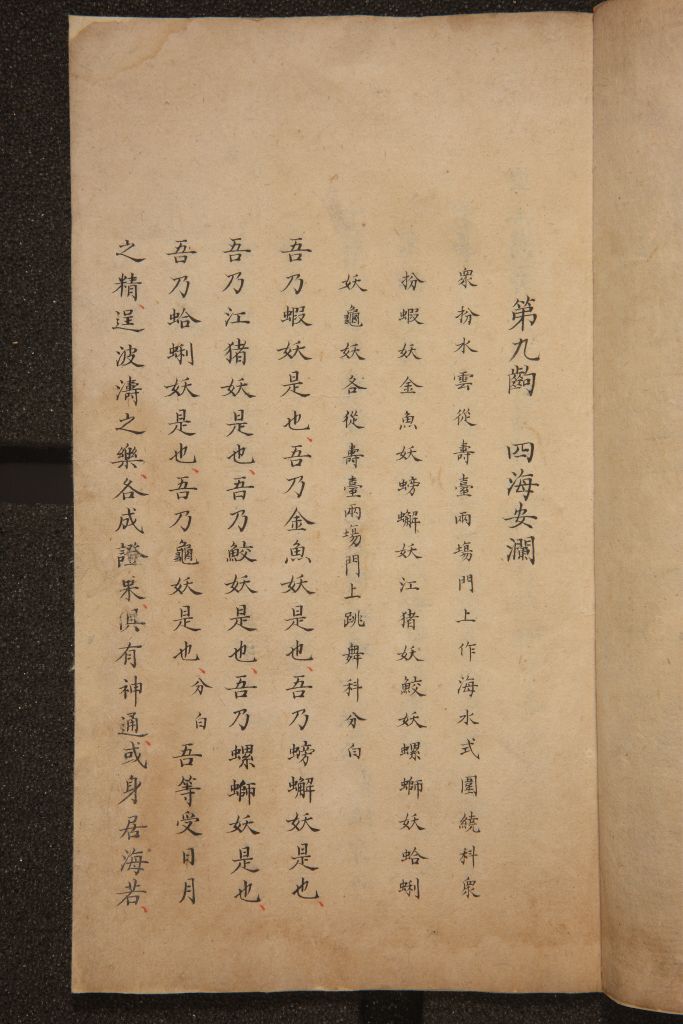 第九齣　四海安瀾
衆扮水雲從壽臺兩塲門上作海水式圍繞科衆
扮蝦妖金魚妖螃蠏妖江猪妖鮫妖螺螄妖蛤蜊
妖龜妖各從壽臺兩塲門上跳舞科分白
吾乃蝦妖是也、吾乃金魚妖是也、吾乃螃蠏妖是也、
吾乃江猪妖是也、吾乃鮫妖是也、吾乃螺螄妖是也、
吾乃蛤蜊妖是也、吾乃龜妖是也、分白吾等受日月
之精、逞波濤之樂、各成證果、俱有神通、或身居海若、